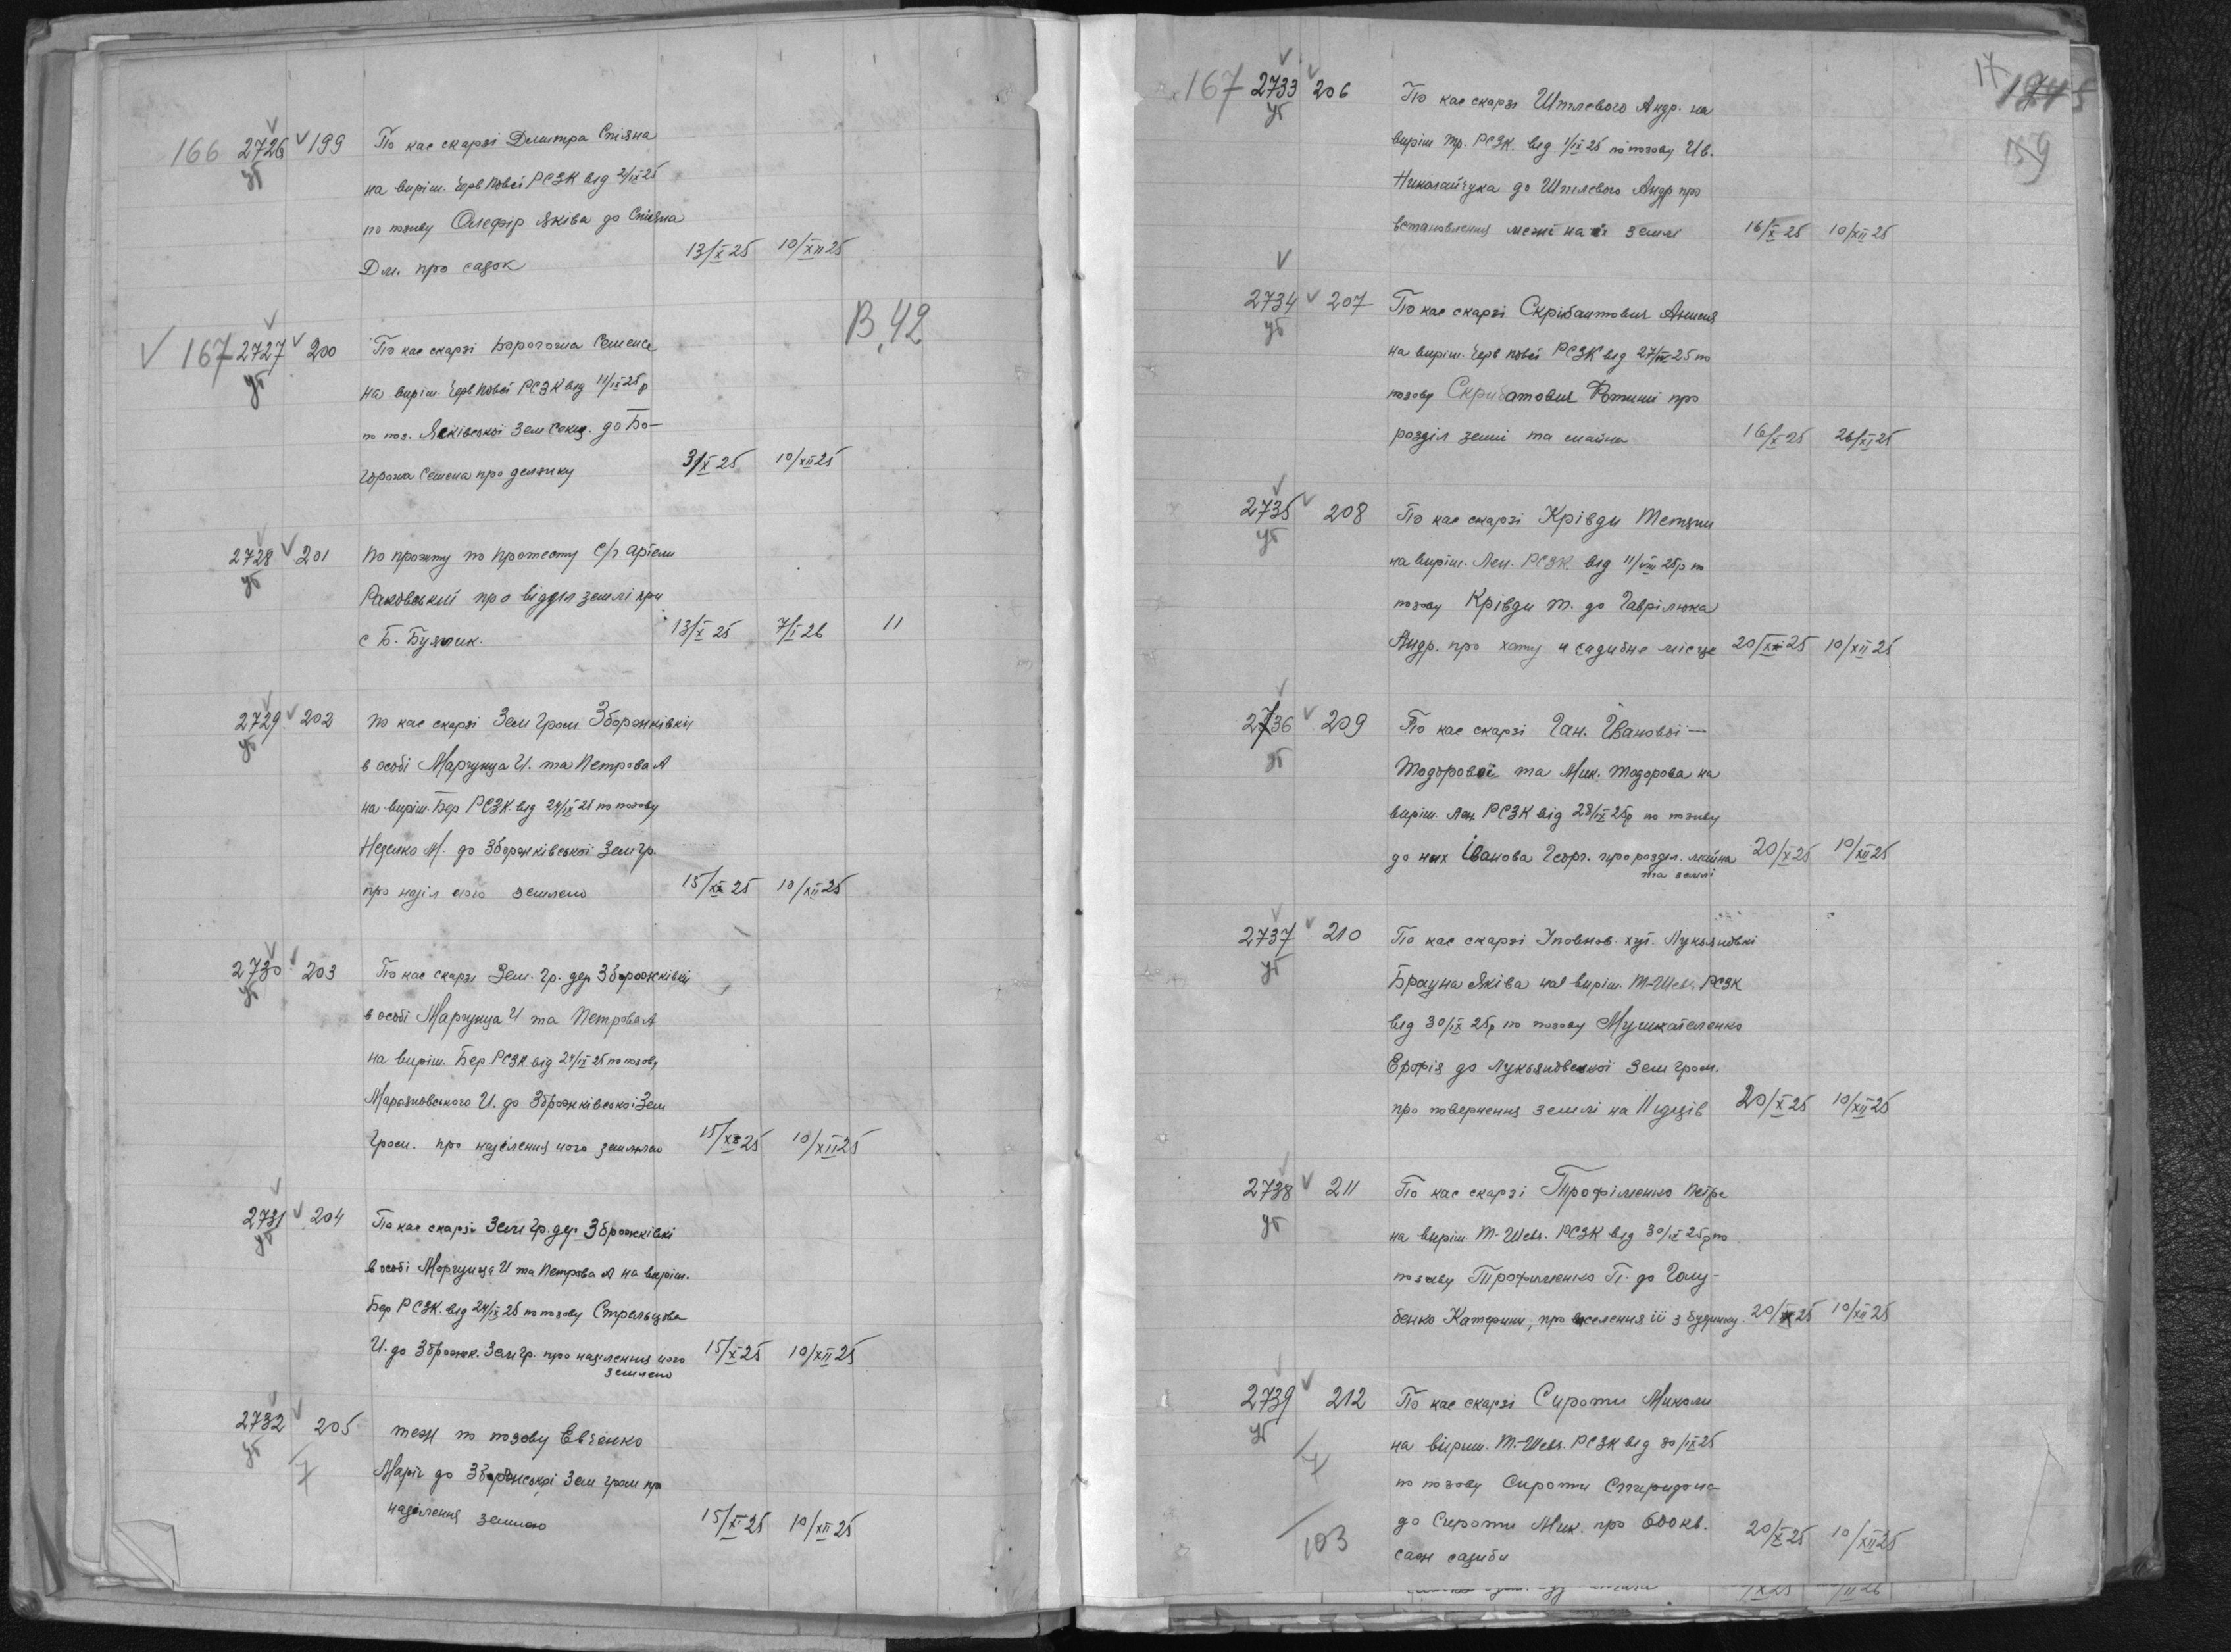 166 2726 199 По кас скарзі Дмитра Спіяна
на виріш. Черв Пової РСЗК від 2/IX 25
по позву Олефір Яківа до Спіяна
Дм. про садок 13/X 25 10/XII 25
В. 42
167 2727 200 По кас скарзі Борогона Семена
на виріш. Черв Пової РСЗК від 11/IX 25 р
по поз. Яськівської Зем Секц. до Бо-
Семена про 31/X 25 10/XII 25
2728 201 По протесту с/г. артели
Раковський про відділ землі при
с Б. Буялик. 13/X 25 7/I 26 11
2729 202 По кас скарзі Зем Гром Зборожківки
в особі Маргунца И. та Петрова А
на виріш. Бер РСЗК від 24/IX 25 по позову
Неделко М. до Зборожківської Зем Гр.
про наділ його землею 15/X 25 10/XII 25
2730 203 По кас скарзі Зем. Гр. дер Зборожківки
в особі Маргунца И та Петрова А
на виріш. Бер РСЗК від 24/IX 25 по позову
Марьяновського И. до Зброжківської Зем
Гром. про наділення його землею 15/X 25 10/XII 25
2731 204 По кас скарзі Зем Гр. дер Зброжківкі
в особі Моргунца И та Петрова А на виріш.
Бер РСЗК. від 24/IX 25 по позову Стрельцова
И. до Зброжк. Зем Гр. про наділення його 15/X 25 10/XII 25
землею
2732 205 теж по позову Евченко
7 Маріі до Зем гром про
наділення землею 15/XI 25 10/XII 25
17
159
167 2733 206 По кас скарзі Штлевого Андр. на
виріш Тр. РСЗК. від 1/IX 25 по позову Ив.
Николайчука до Штлевого Андр про
встановлення межі на землі 16/X 25 10/XII 25
2734 207 По кас скарзі Скрібантович
на виріш. Черв Пової РСЗК від 27/ 25 по
позову Скрибатович про
розділ землі та майна 16/X 25 26/XI 25
2735 208 По кас скарзі Крівди Тетяни
на виріш. Лен. РСЗК. від 11/VIII 25 р по
позову Крівди Т. до Гаврілюка
Андр. про хату и садибне місце 20/X 25 10/XII 25
2736 209 По кас скарзі Ган. Іванової —
Тодорової та Мик. Тодорова на
виріш. Лен. РСЗК від 28/IX 25 р по позву
до них Іванова Георг. про розділ. майна 20/X 25 10/XII 25
та землі
2737 210 По кас скарзі Уповнов. хут. Лукьянівкі
Брауна Яківа на виріш. Т-Шевч. РСЗК
від 30/IX 25 р по позову
Ерофія до Лукьянівської Зем Гром.
про повернення землі на 11 їдців 20/X 25 10/XII 25
2738 211 По кас скарзі Трофіменко Петра
на виріш. Т-Шевч. РСЗК від 30/IX 25 р по
позову Трофименко П. до Голу-
бенко Катерини, про виселення її з будинку 20/X 25 10/XII 25
2739 212 По кас скарзі Сироти Миколи
7 на віриш. Т-Шевч. РСЗК від 30/IX 25
по позову Сироти Спиридона
103 до Сироти Мик. про 600 кв. 20/X 25 10/XII 25
саж садиби